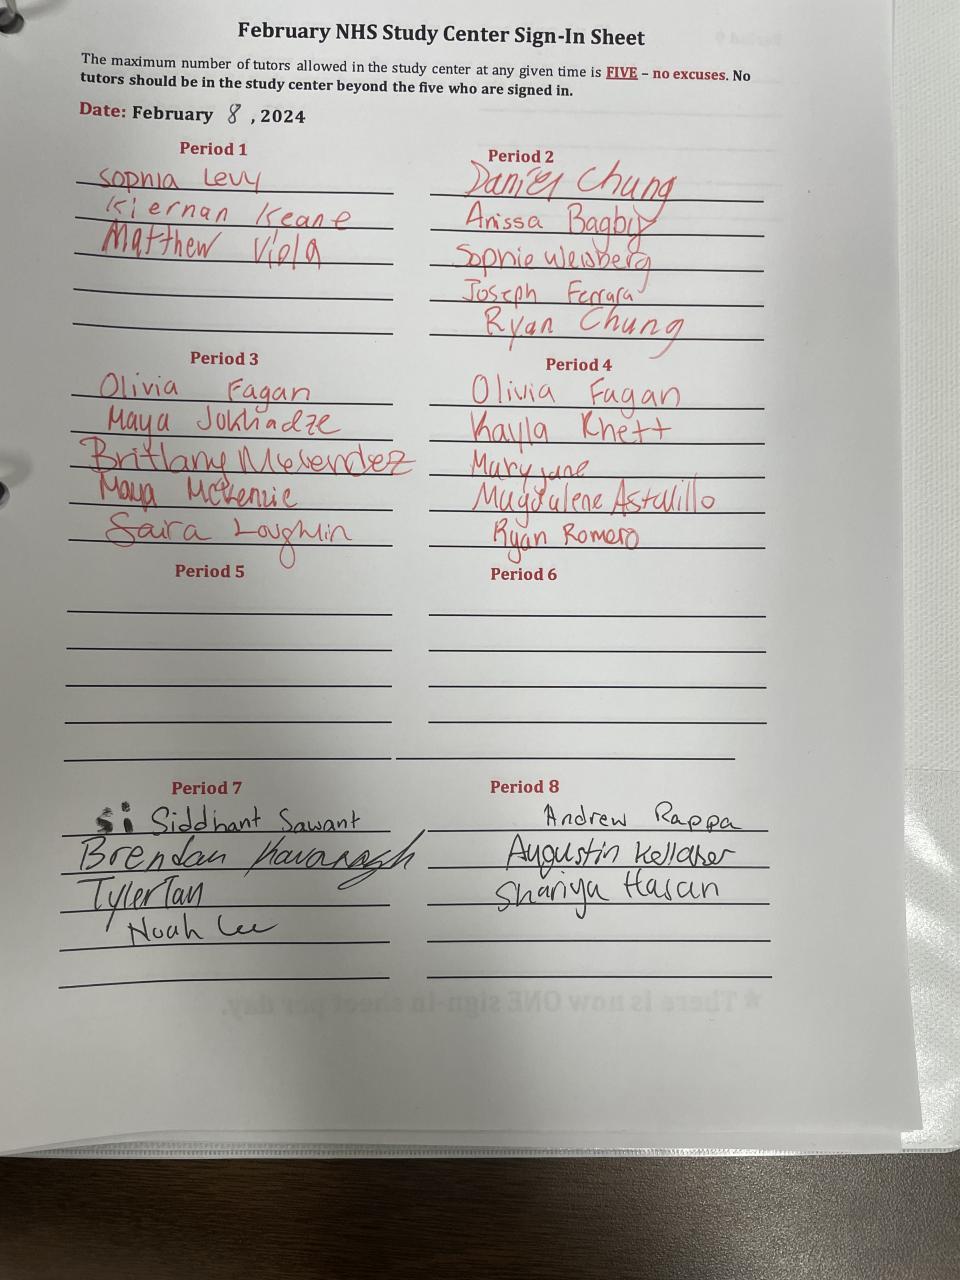 February NHS Study Center Sign-In Sheet
The maximum number of tutors allowed in the study center at any given time is FIVE – no excuses. No
tutors should be in the study center beyond the five who are signed in.
Date: February 8, 2024
Period 1
Sophia Levy
Kiernan Keane
Matthew Viola
Period 2
Daniel Chung
Anissa Bagby
Sophie Weisberg
Joseph Ferrara
Ryan Chung
Period 3
Olivia Fagan
Maya Jokhadze
Brittany
Maya McKenzie
Saira Loughlin
Period 4
Olivia Fagan
Kayla Khett
Mary jane
Magdalene Astudillo
Ryan Romero
Period 5
Period 6
Period 7
Si Siddhant Sawant
Brendan Kavanagh
Tyler Tan
Noah Lee
Period 8
Andrew Rappa
Augustin Kellaher
Shariya Hasan
* There is now ONE sign-in sheet per day.